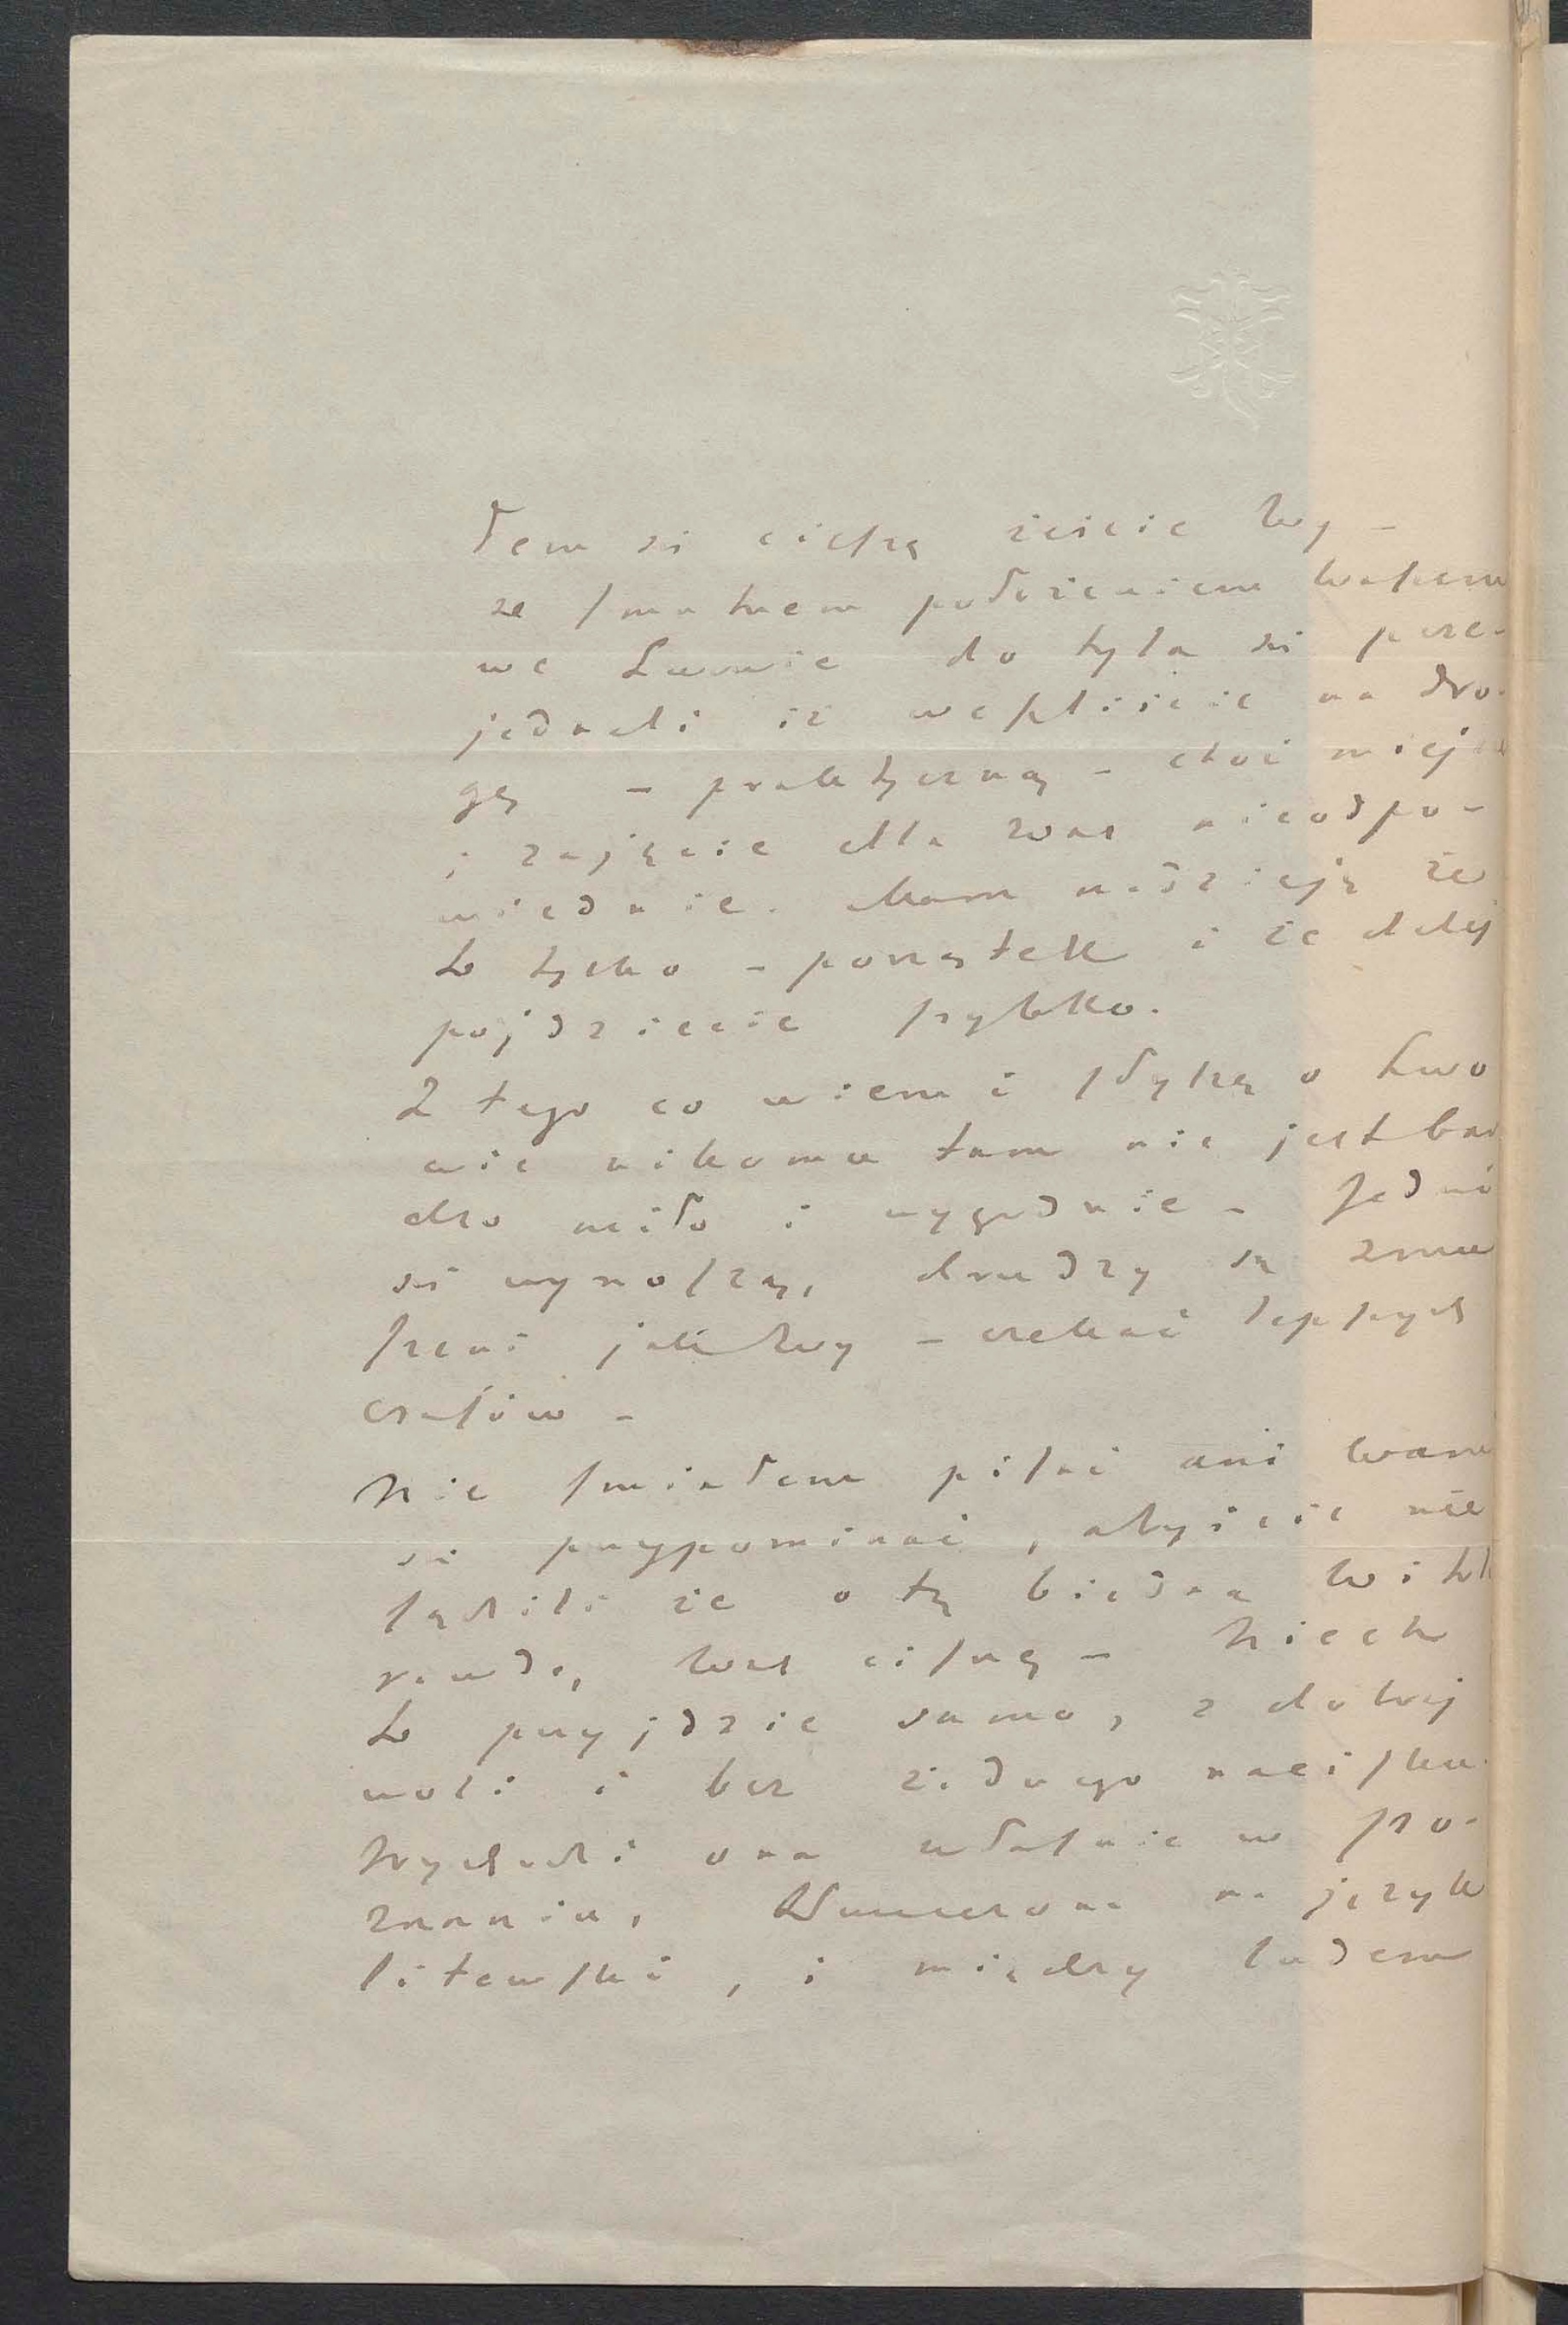 Tem się cieszę żeście Wy –
ze smutnem położeniem Waszem
we Lwowie do tyla się poże-
jednali iż weszliście na dro-
gę – praktyczną – choć miejsce
i zajęcie dla Was nieodpo-
wiednie. Mam nadzieję że
to tylko – początek i że dalej
pojdziecie szybko.
Z tego co wiem i słyszę o Lwo
wie nikomu tam nie jest bar
dzo miło i wygodnie – Jedni
się wynoszą, drudzy są zmu
szeni jak Wy – czekać lepszych
czasów –
Nie śmiałem pisać ani Wam
się przypominać, abyście nie
sądzili że o tę biedną
Was cisnę – Niech
to przyjdzie samo, z dobrej
woli i bez żadnego nacisku.
Wychodzi ona właśnie w Po-
znaniu, tłumaczona na język
litewski, i między ludem